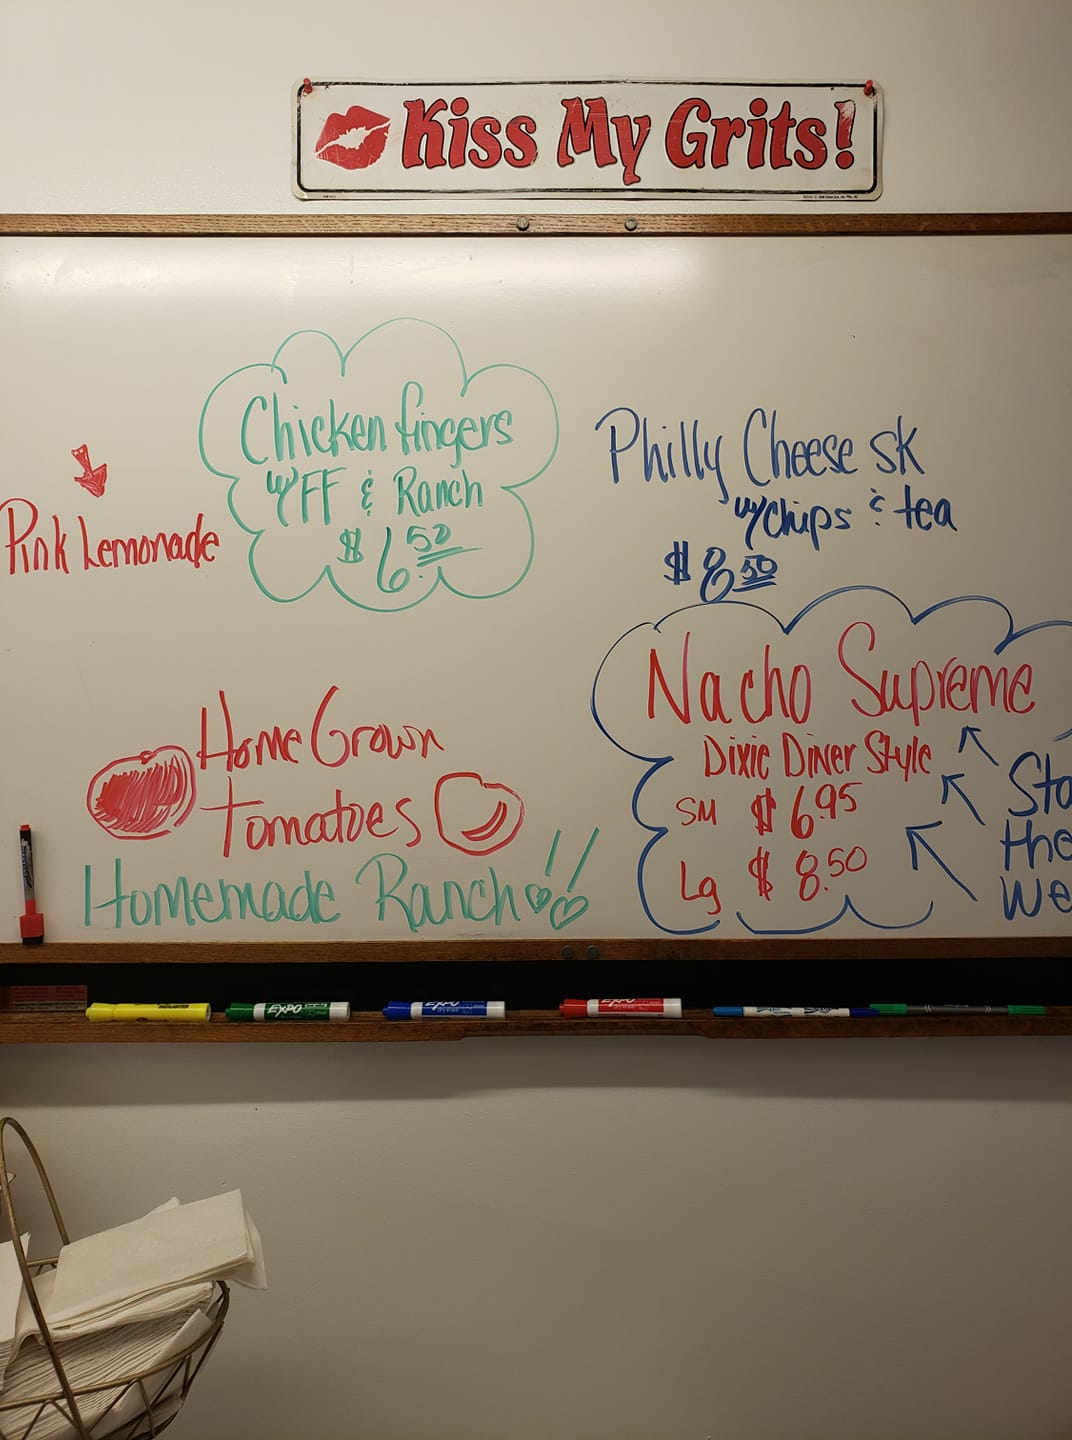 Kiss My Grits!
Chicken fingers
w/FF & Ranch
$6.50
Pink Lemonade
Philly Cheese SK
w/chips & tea
$8.50
Nacho Supreme
Dixie Diner Style
SM $6.95
Lg $8.50
Sta
the
We
Home Grown
Tomatoes
Homemade Ranch!!
HIGHLIGHTER
EXPO
EXPO
EXPO